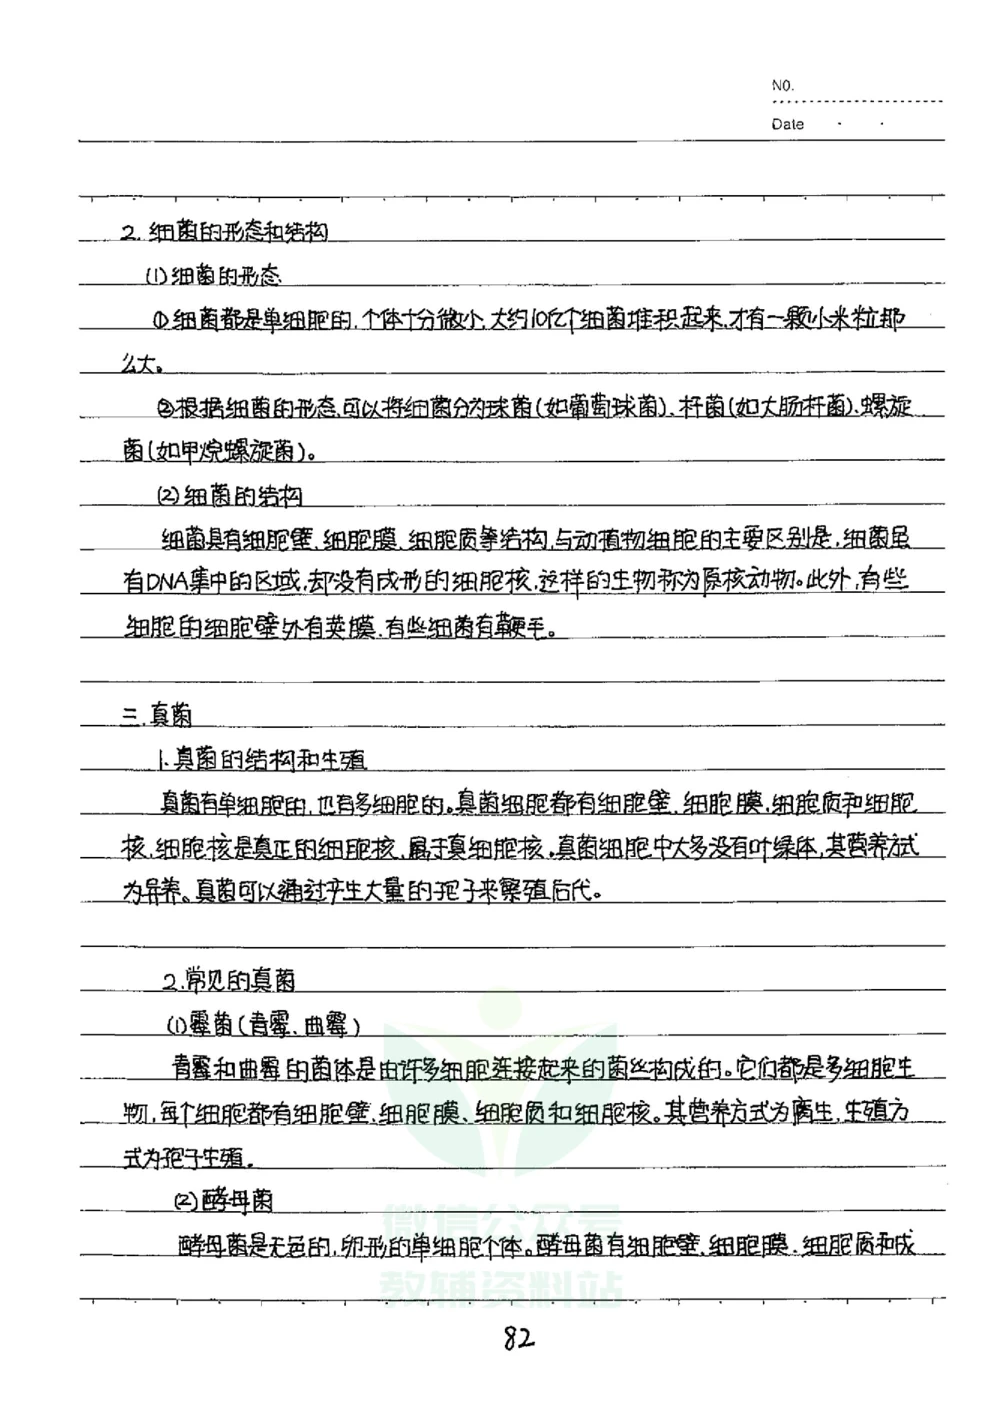 NO.
Date
2. 细菌的形态和结构
(1)细菌的形态
①细菌都是单细胞的,个体十分微小,大约10亿个细菌堆积起来,才有一颗小米粒那
么大。
②根据细菌的形态,可以将细菌分为球菌(如葡萄球菌)、杆菌(如大肠杆菌)、螺旋
菌(如甲烷螺旋菌)。
(2)细菌的结构
细菌具有细胞壁、细胞膜、细胞质等结构,与动植物细胞的主要区别是,细菌虽
有DNA集中的区域,却没有成形的细胞核,这样的生物称为原核动物。此外,有些
细胞的细胞壁外有荚膜,有些细菌有鞭毛。
三.真菌
1.真菌的结构和生殖
真菌有单细胞的,也有多细胞的。真菌细胞都有细胞壁、细胞膜、细胞质和细胞
核,细胞核是真正的细胞核,属于真细胞核。真菌细胞中大多没有叶绿体,其营养方式
为异养。真菌可以通过产生大量的孢子来繁殖后代。
2.常见的真菌
(1)霉菌(青霉、曲霉)
青霉和曲霉的菌体是由许多细胞连接起来的菌丝构成的。它们都是多细胞生
物,每个细胞都有细胞壁、细胞膜、细胞质和细胞核。其营养方式为腐生,生殖方
式为孢子生殖。
(2)酵母菌
酵母菌是无色的,卵形的单细胞个体。酵母菌有细胞壁、细胞膜、细胞质和成
微信公众号
教辅资料站
82